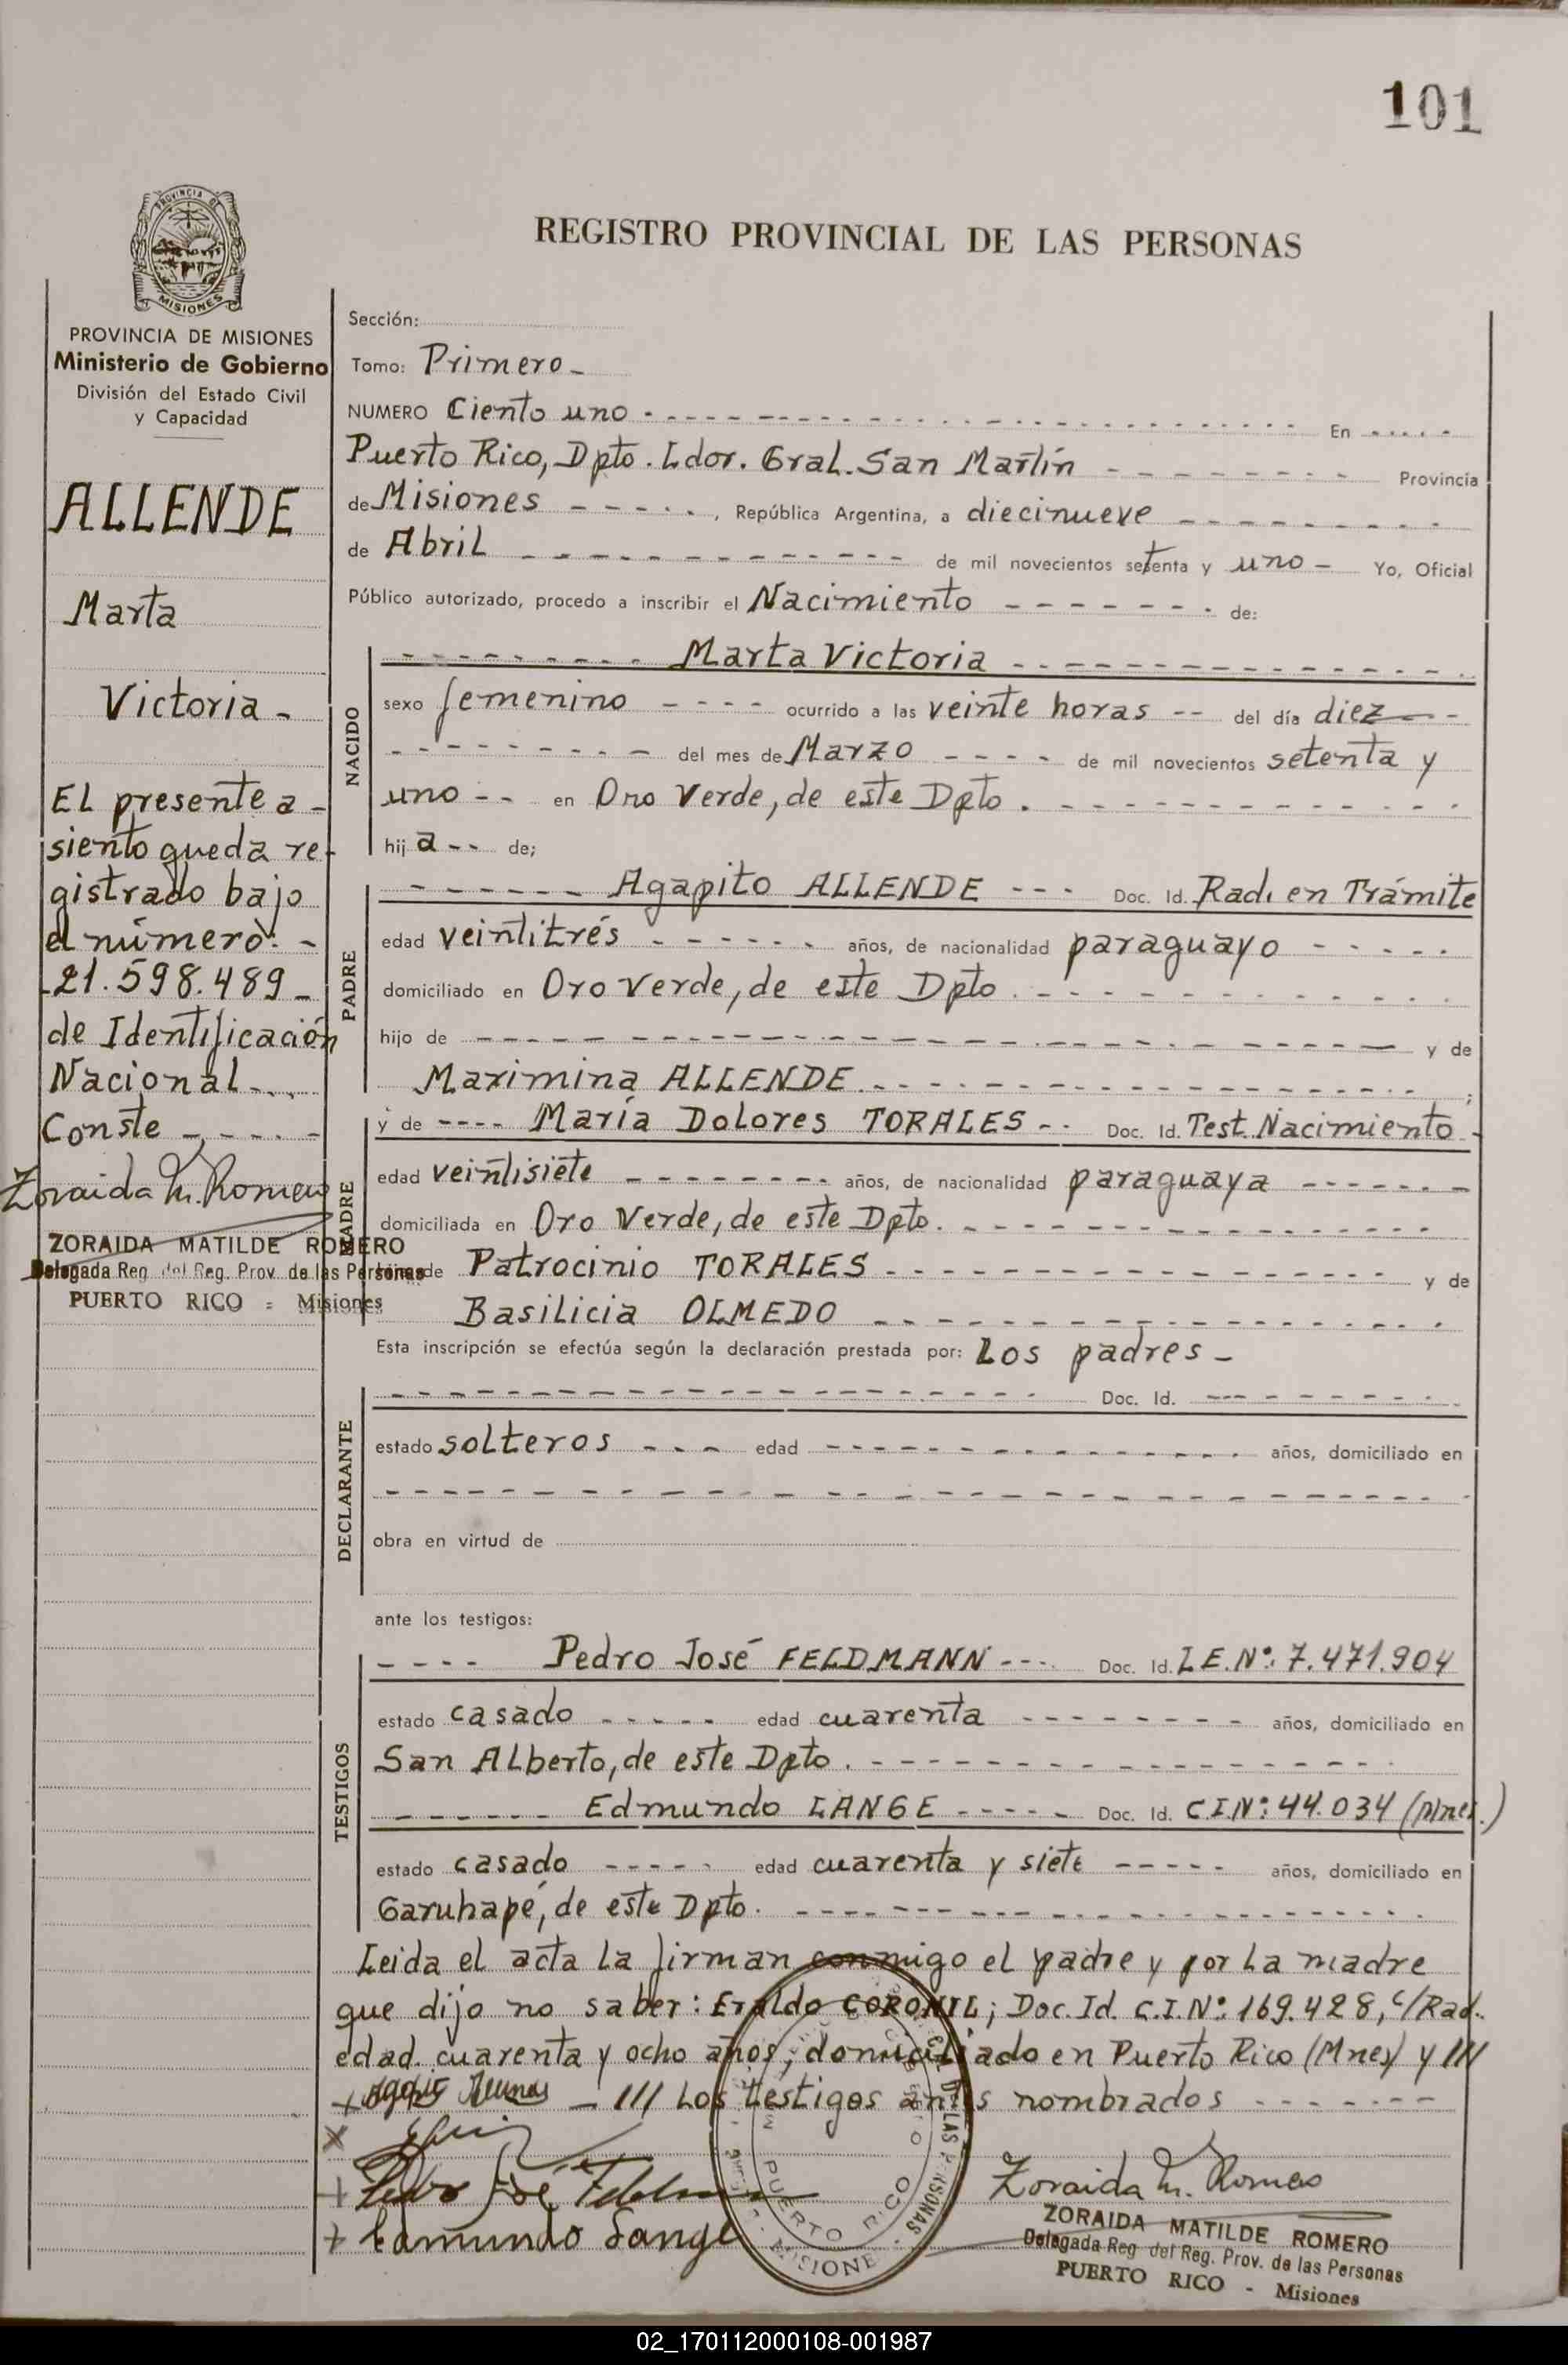 101
PROVINCIA DE
MISIONES
REGISTRO PROVINCIAL DE LAS PERSONAS
PROVINCIA DE MISIONES
Ministerio de Gobierno
División del Estado Civil
y Capacidad
ALLENDE
Marta
Victoria -
El presente a -
siento queda re-
gistrado bajo
el número: -
21.598.489 -
de Identificación
Nacional
Conste
Zoraida M. Romero
ZORAIDA MATILDE ROMERO
Delegada Reg. del Reg. Prov. de las Personas
PUERTO RICO - Misiones
Sección:
Tomo: Primero -
NUMERO Ciento uno - En
Puerto Rico, Dpto. Ldor. Gral. San Martín - Provincia
de Misiones - , República Argentina, a diecinueve -
de Abril - de mil novecientos setenta y uno - Yo, Oficial
Público autorizado, procedo a inscribir el Nacimiento - de:
NACIDO
Marta Victoria
sexo femenino - ocurrido a las veinte horas -- del día diez -
del mes de Marzo - de mil novecientos setenta y
uno -- en Oro Verde, de este Dpto.
hij a -- de;
PADRE
Agapito ALLENDE --- Doc. Id. Rad. en Trámite
edad veintitrés - años, de nacionalidad paraguayo -
domiciliado en Oro Verde, de este Dpto.
hijo de - y de
Maximina ALLENDE ;
MADRE
y de ---- María Dolores TORALES -- Doc. Id. Test. Nacimiento -
edad veintisiete - años, de nacionalidad paraguaya -
domiciliada en Oro Verde, de este Dpto.
de Patrocinio TORALES - y de
Basilicia OLMEDO
Esta inscripción se efectúa según la declaración prestada por: Los padres -
DECLARANTE
Doc. Id.
estado solteros --- edad - años, domiciliado en
obra en virtud de
ante los testigos:
TESTIGOS
Pedro José FELDMANN --- Doc. Id. L.E.Nº: 7.471.904
estado casado - edad cuarenta - años, domiciliado en
San Alberto, de este Dpto.
Edmundo LANGE - Doc. Id. C.I.Nº: 44.034 (Mnes.)
estado casado - edad cuarenta y siete - años, domiciliado en
Garuhapé, de este Dpto.
Leida el acta la firman conmigo el padre y por la madre
que dijo no saber: Eraldo CORONIL; Doc. Id. C.I.Nº: 169.428, c/Rad.
edad cuarenta y ocho años, domiciliado en Puerto Rico (Mnes) y ///
- /// Los testigos antes nombrados
Pedro José Feldmann
Edmundo Lange
PUERTO RICO
MISIONES
Zoraida M. Romero
ZORAIDA MATILDE ROMERO
Delegada Reg. del Reg. Prov. de las Personas
PUERTO RICO - Misiones
02_170112000108-001987